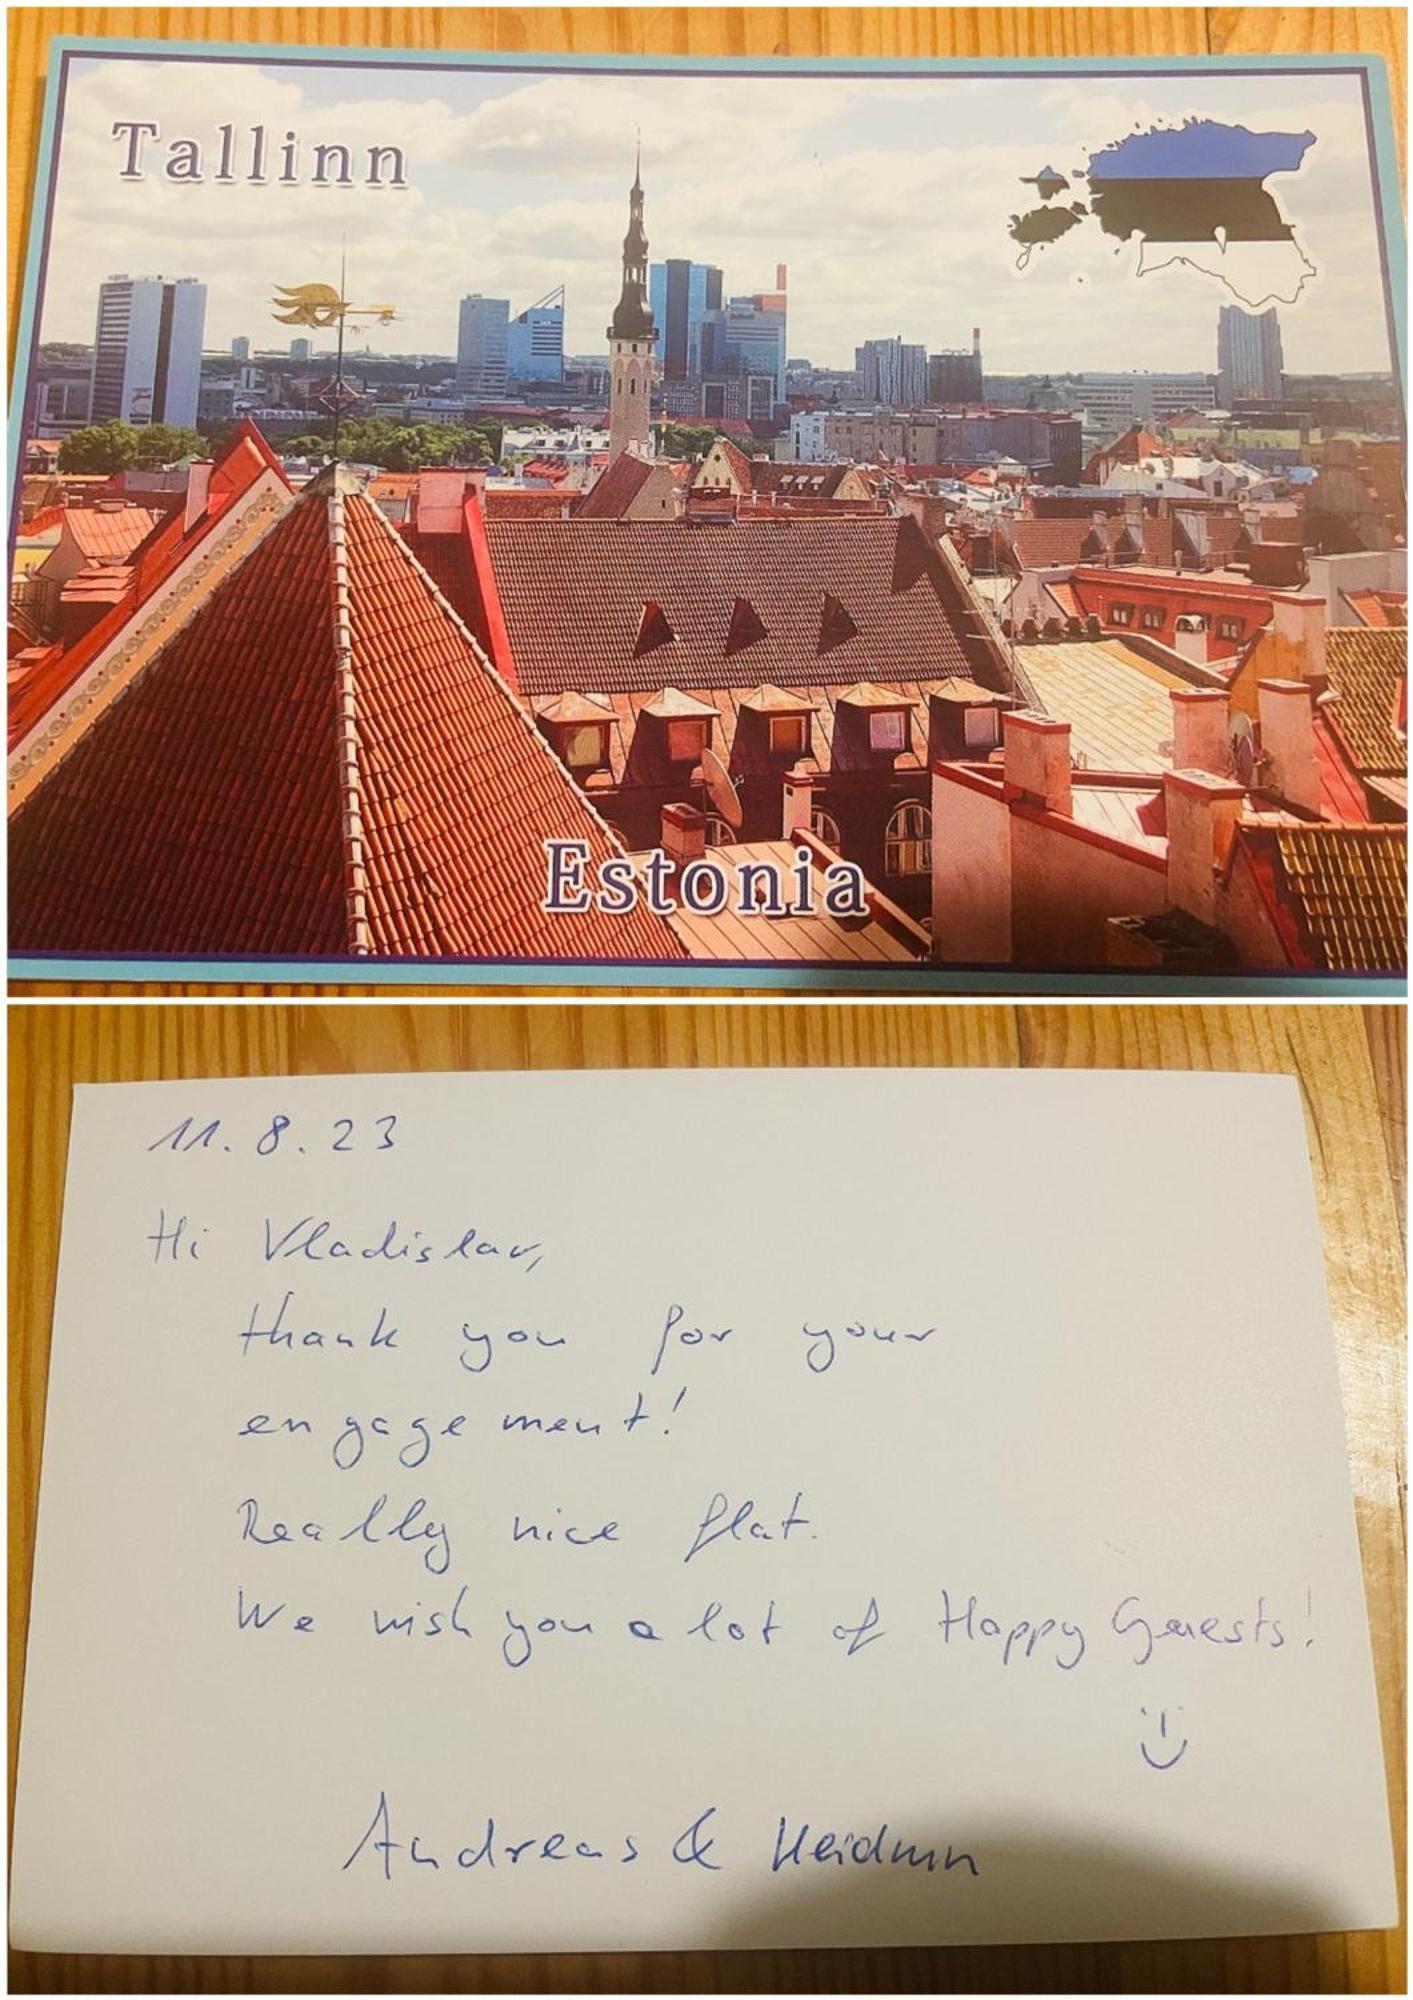 Tallinn
Estonia
11.8.23
Hi Vladislav,
thank you for your
engagement!
Really nice flat.
We wish you a lot of Happy Guests!
Andreas & Heidrun